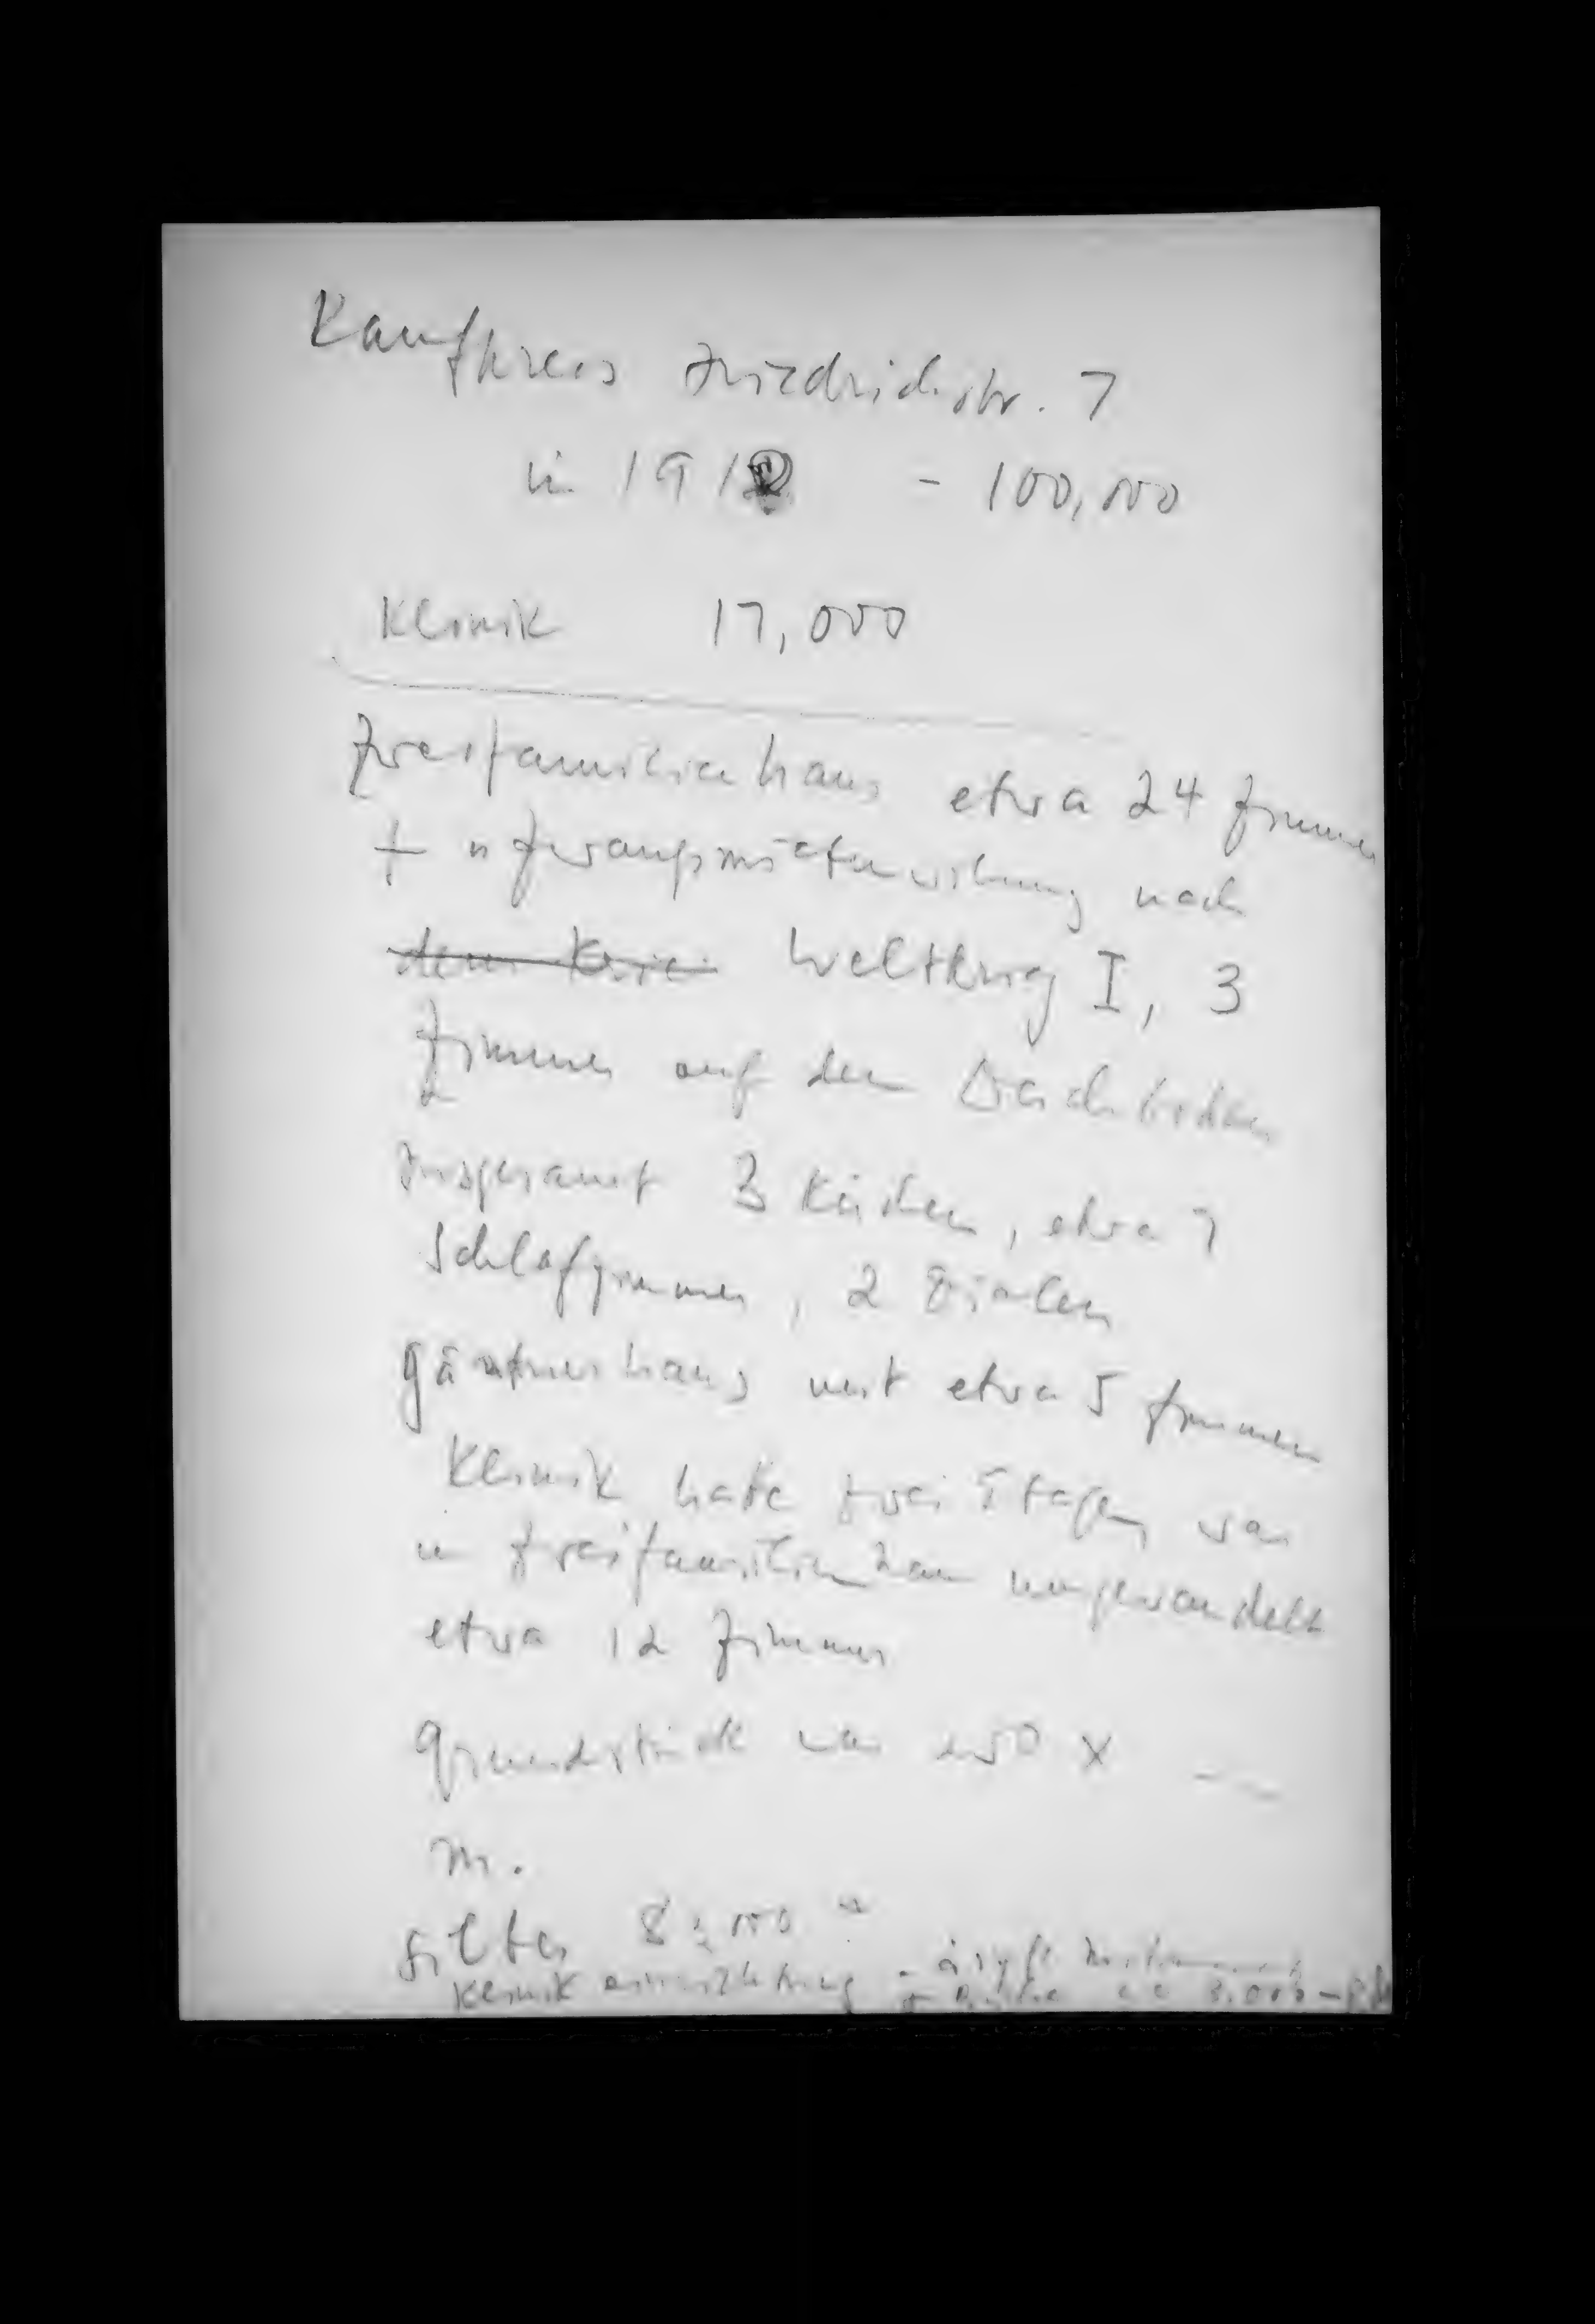 Kaufpreis Friedrichstr. 7
in 1912 - 100,000
Klinik 17,000
Zweifamilienhaus etwa 24 Zimmer
+ Zwangsmieterwohnung nach
dem Krie Weltkrieg I, 3
Zimmer auf dem Dachboden
Insgesamt 3 Küchen, etwa 7
Schlafzimmer, 2 Dielen
Gärtnerhaus mit etwa 5 Zimmern
Klinik hatte zwei Etagen, war
in Zweifamilienhaus umgewandelt
etwa 12 Zimmer
Grundstück war x
m.
Silber
Klinik einrichtung 3.000 - RM